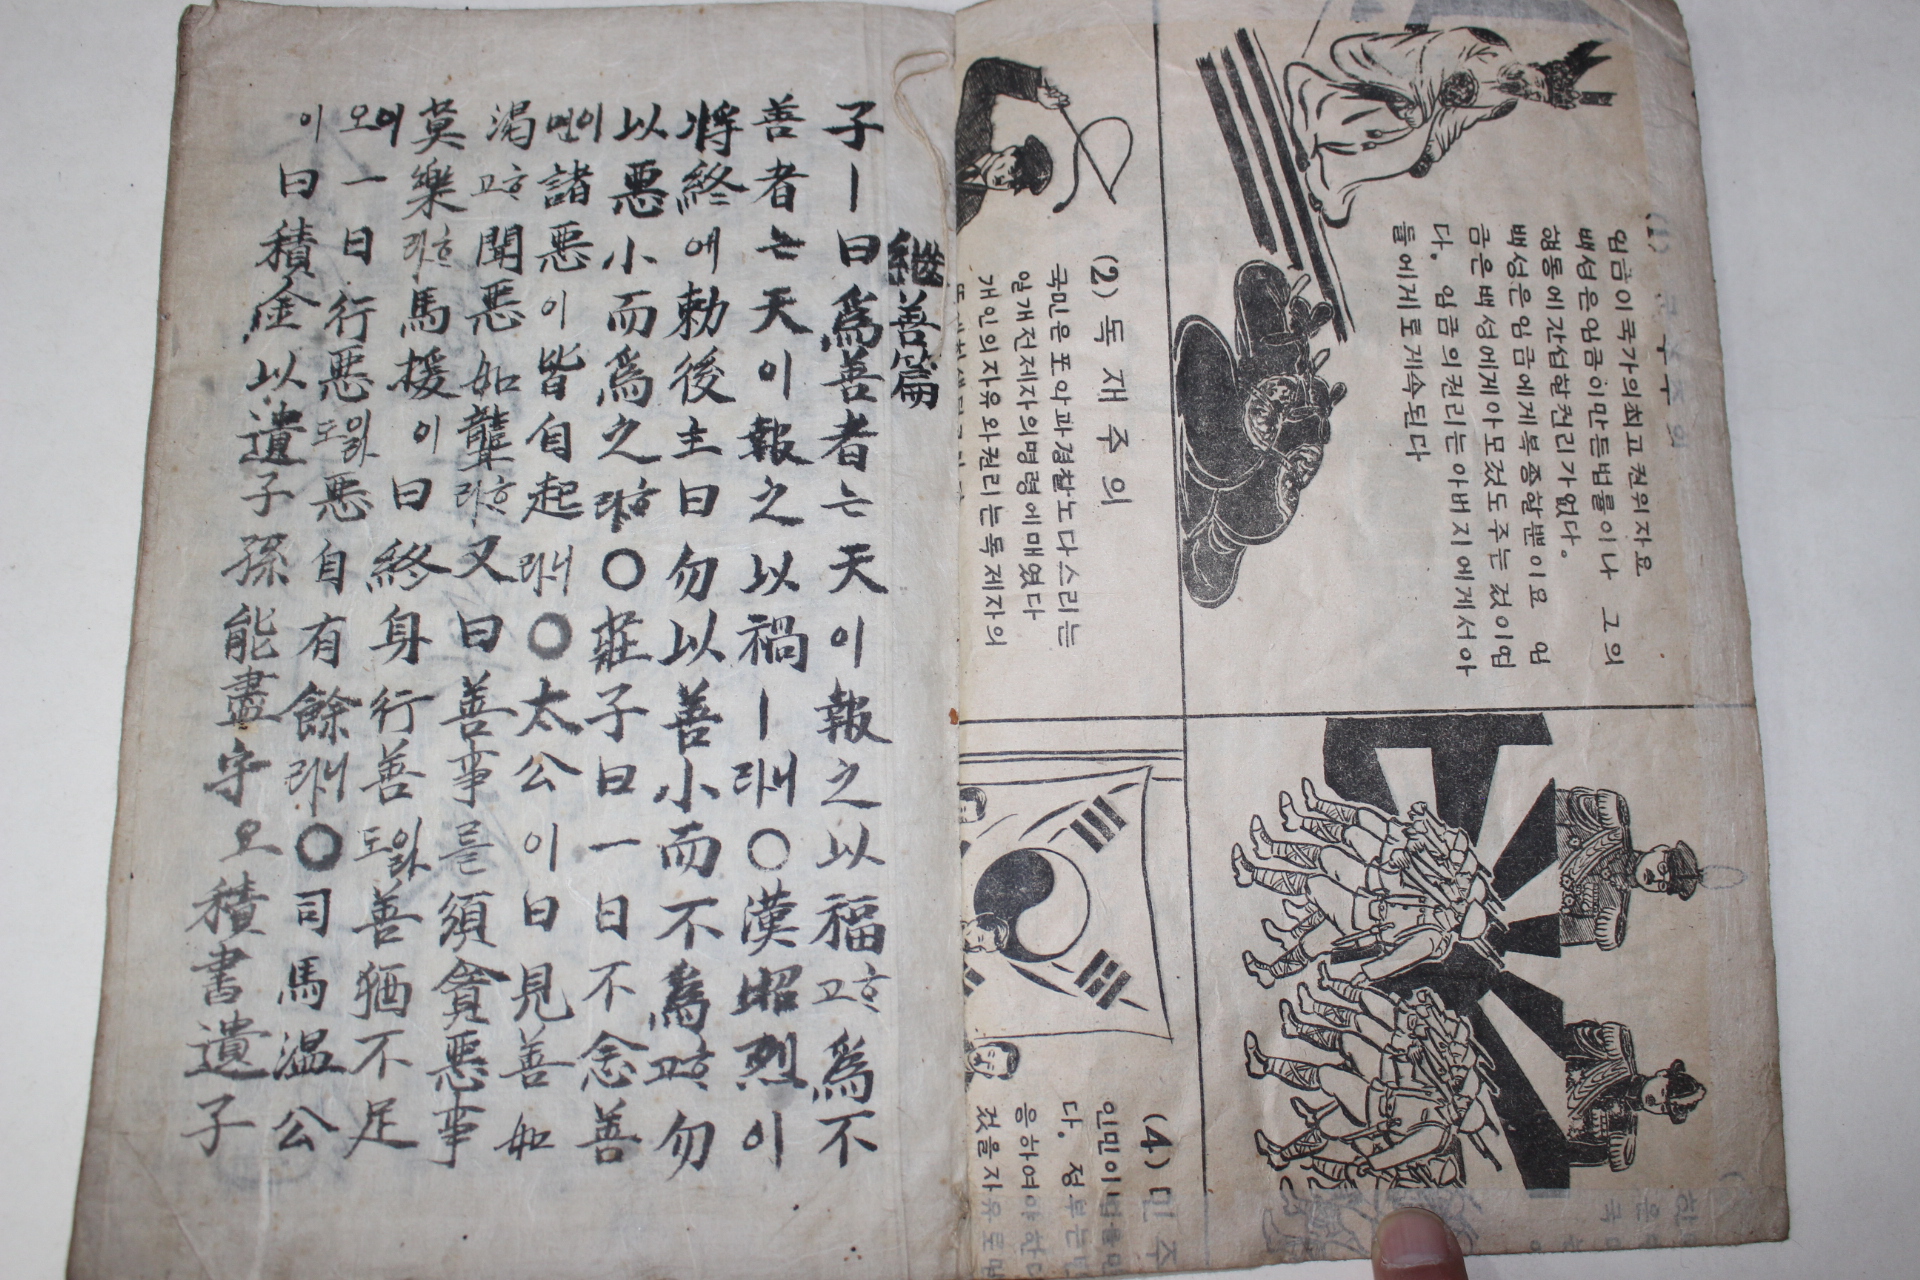 繼善篇
子ㅣ曰爲善者는天이報之以福고호爲不
善者는天이報之以禍ㅣ라니○漢昭烈이
將終애勅後主曰勿以善小而不爲고호勿
以惡小而爲之라호○莊子曰一日不念善
이면諸惡이皆自起라니○太公이曰見善如
渴고호聞惡如聾라호又曰善事를須貪惡事
莫樂라호馬援이曰終身行善도이라善猶不足
이오一日行惡도이라惡自有餘라니○司馬溫公
이曰積金以遺子孫能盡守오積書遺子
임금이 국가의 최고 권위자요
백성은 임금이 만든 법률이나 그의
행동에 간섭할 권리가 없다.
백성은 임금에게 복종할뿐이요 임
금은 백성에게 아모것도 주는 것이 업
다. 임금의 권리는 아버지에게서 아
들에게로 계속된다
(2) 독재주의
국민은 포악과 경찰노 다스리는
일개 전제자의 명령에 매였다
개인의 자유와 권리는 독제자의
(4) 민주
인민이 법률
다. 정부는
응하여야 한다
것을 자유로